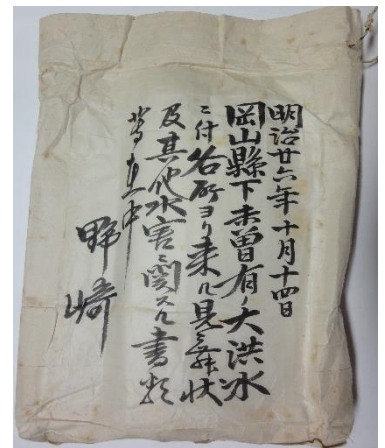 明治廿六年十月十四日
岡山縣下未曽有ノ大洪水
ニ付各所ヨリ来ル見舞状
及其他水害ニ関スル書類
野﨑